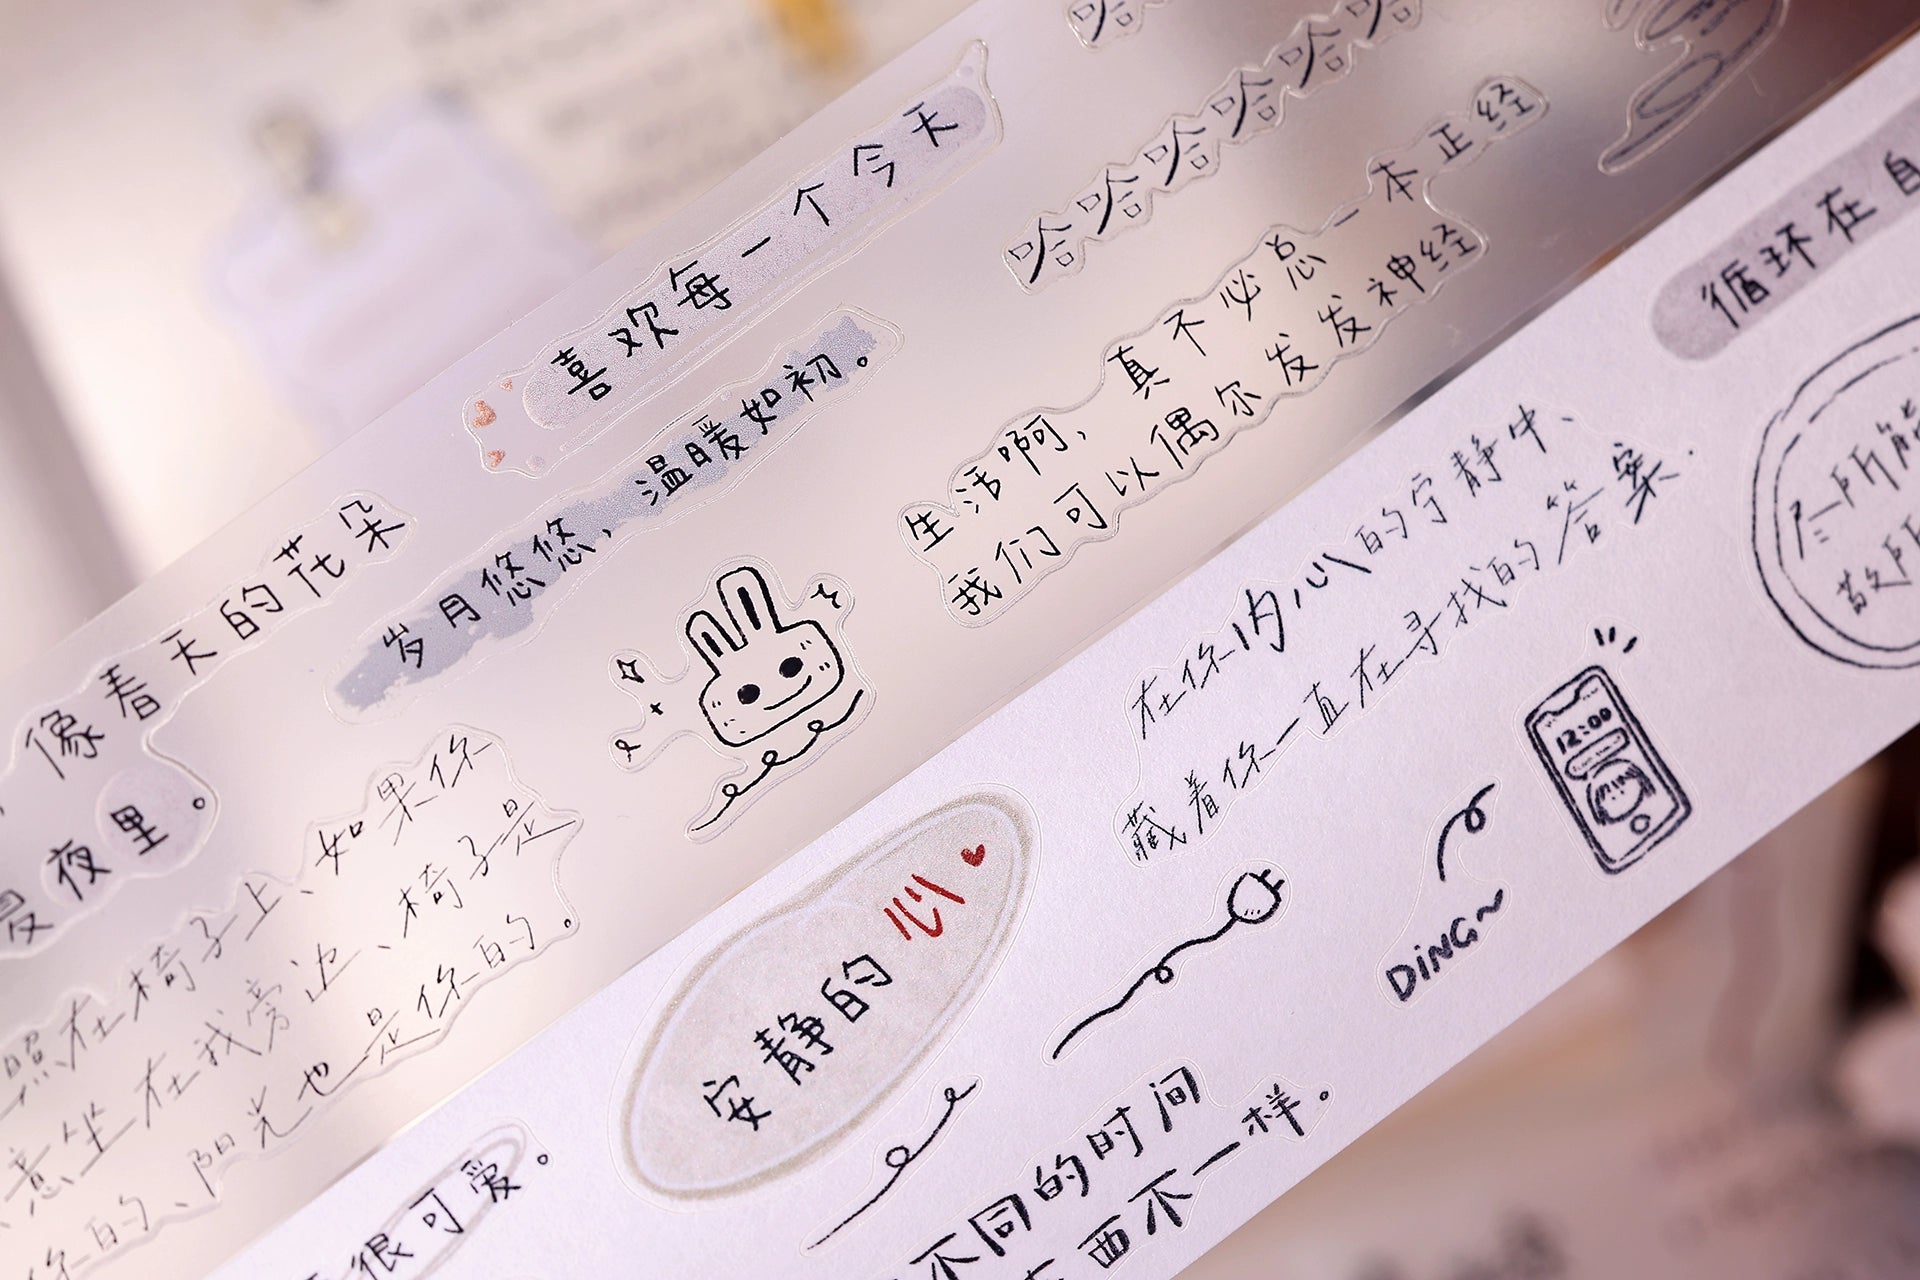 哈
哈哈哈哈哈哈
喜欢每一个今天
岁月悠悠，温暖如初。
生活啊，真不必总一本正经
我们可以偶尔发发神经
像春天的花朵
夜里。
照在椅子上、如果你
意坐在我旁边、椅子是
你的、阳光也是你的。
循环在自
尽所能
敬所
在你内心的宁静中、
藏着你一直在寻找的答案.
12:00
DING~
安静的心
很可爱。
不同的时间
西不一样。